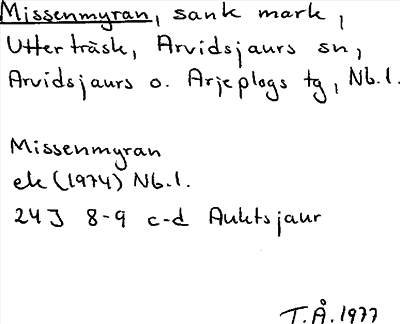 Missenmyran, sank mark,
Utterträsk, Arvidsjaurs sn,
Arvidsjaurs o. Arjeplogs tg, Nb.l.
Missenmyran
ek (1974) Nb.l.
24J 8-9 c-d Auktsjaur
T.Å. 1977